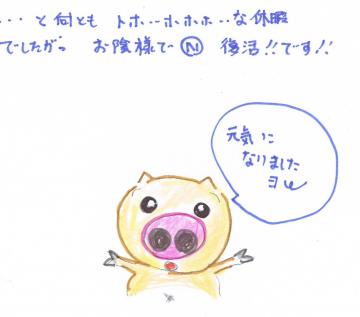 ・・・と何とも トホ…ホホホ…な休暇
でしたがっ お陰様で Ⓝ 復活!!です!!
元気に
なりました
ヨw